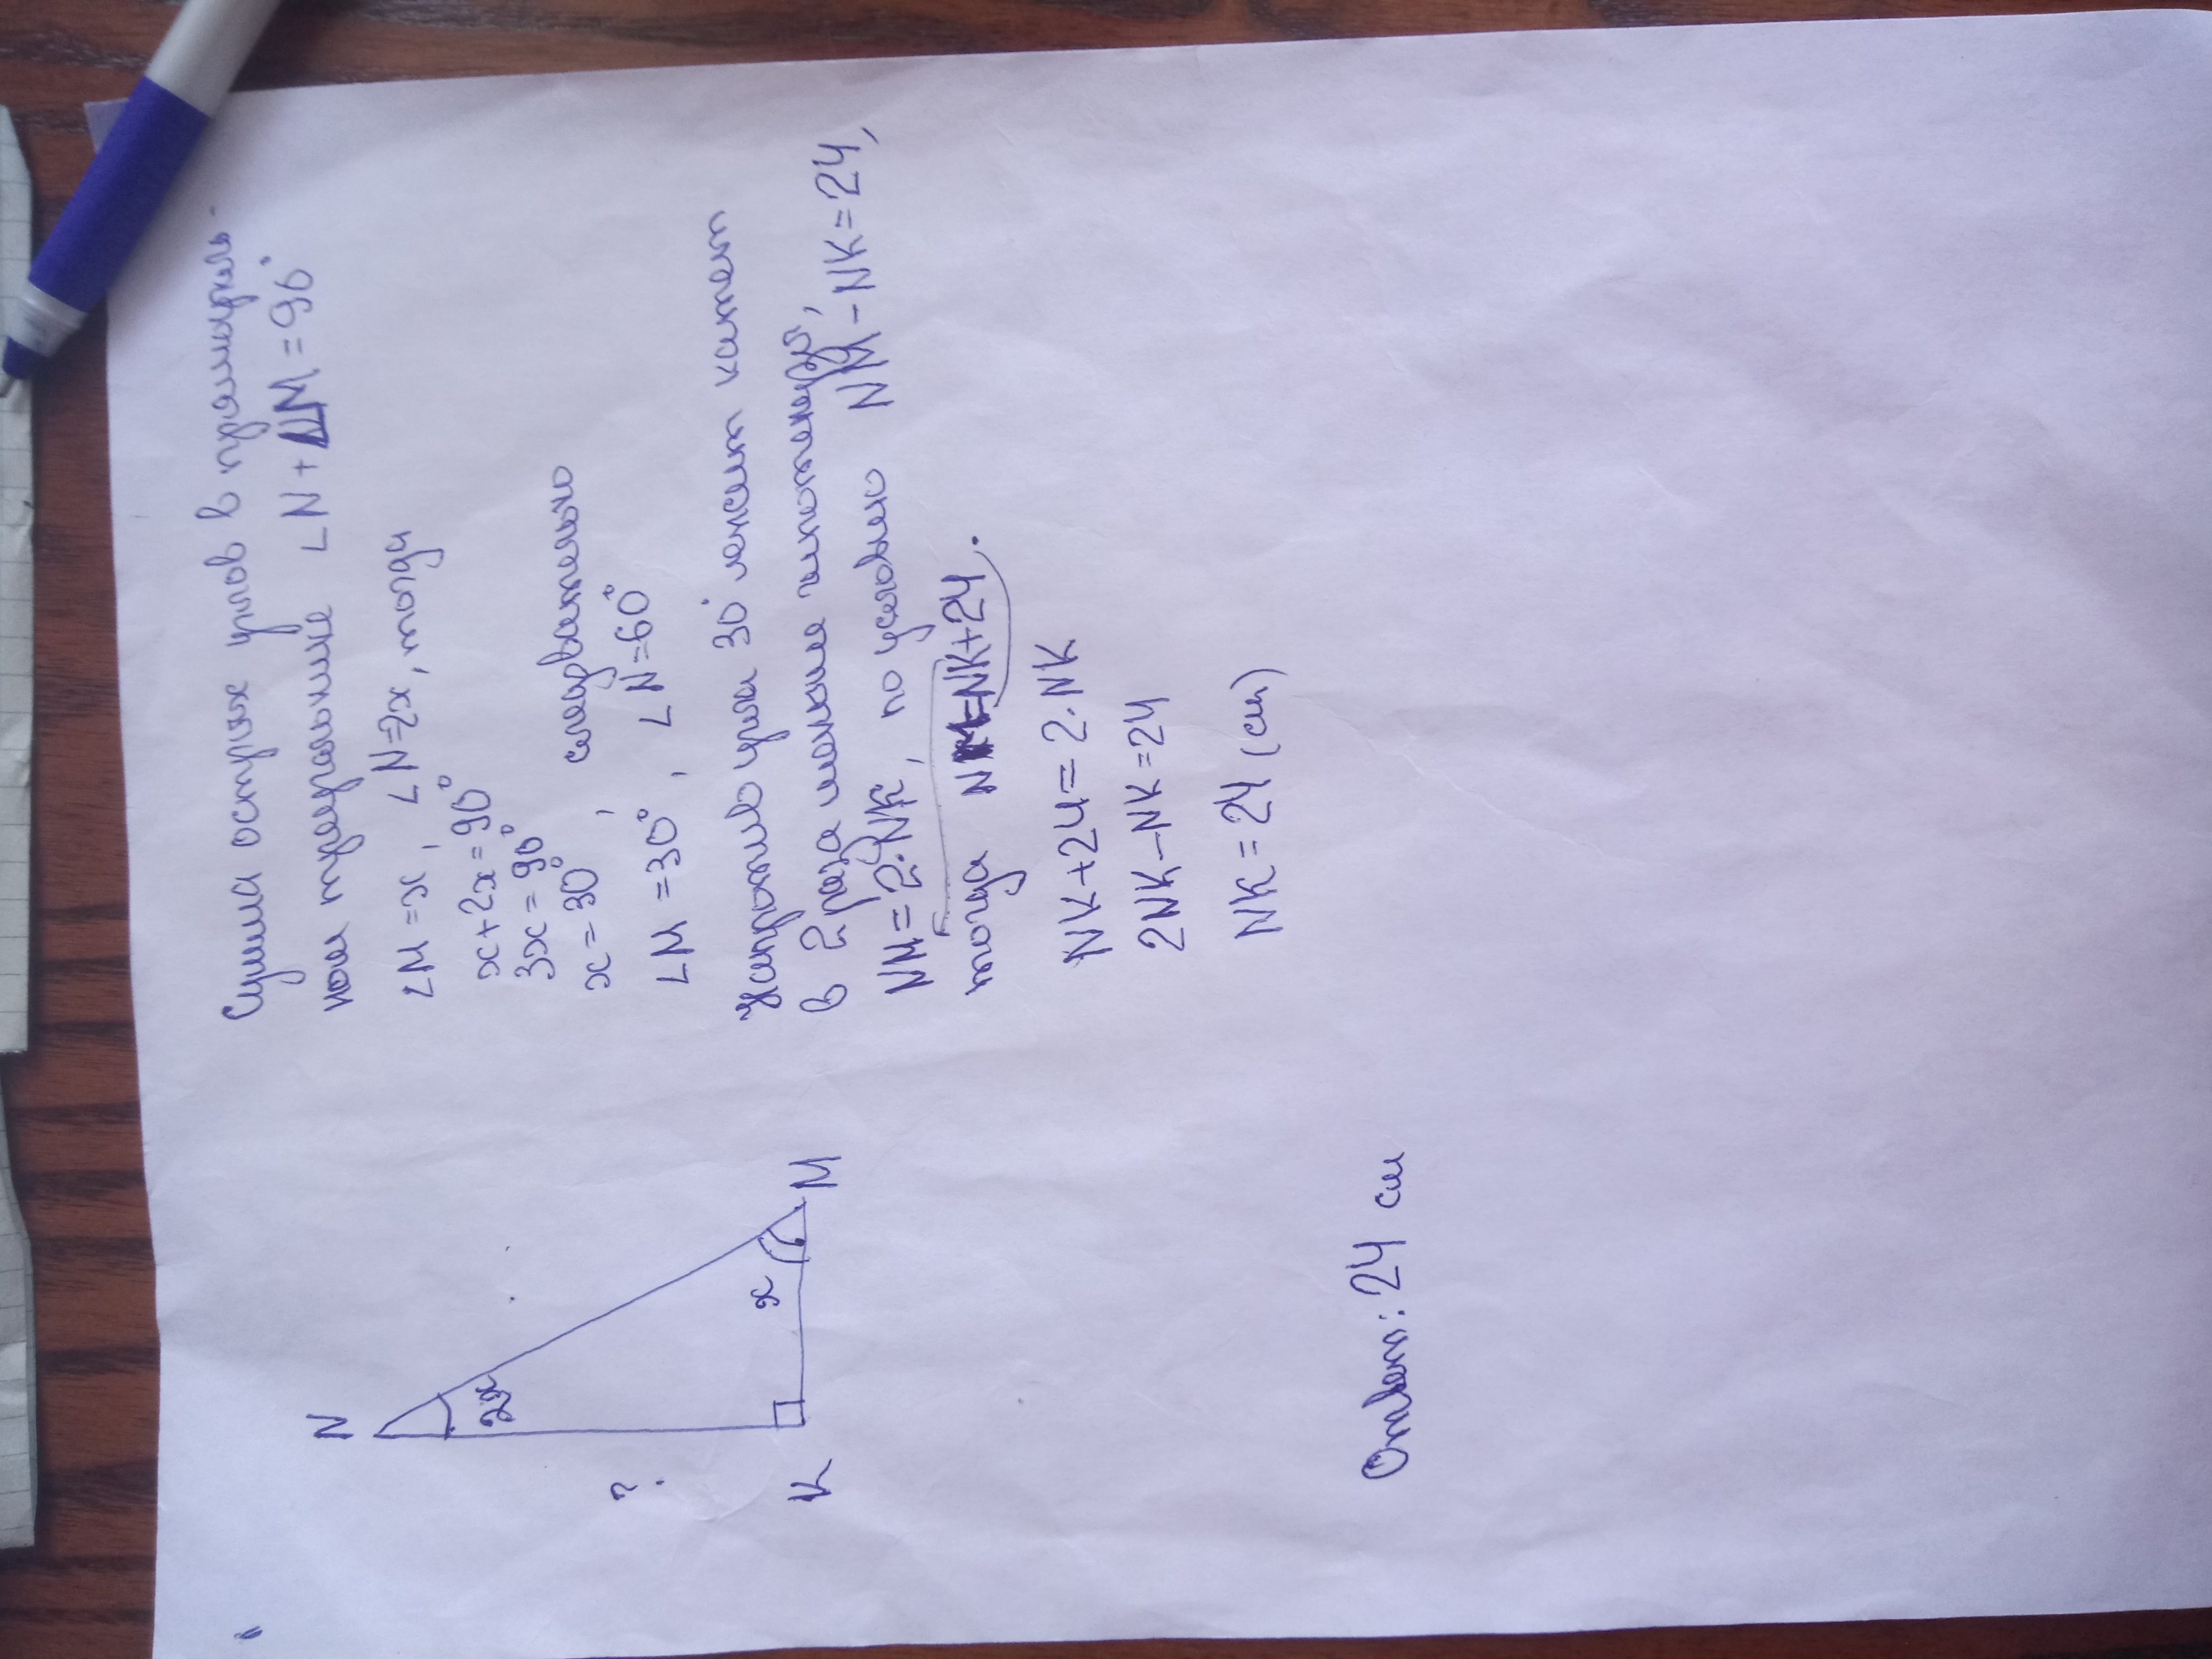 N
2x
?
x
K
M
Сумма острых углов в прямоуголь-
ном треугольнике ∠N+∠M=90°
∠M=x, ∠N=2x, тогда
x+2x=90°
3x=90°
x=30°, следовательно
∠M=30°, ∠N=60°
Напротив угла 30° лежит катет
в 2 раза меньше гипотенузы,
NM=2·NK, по условию NM-NK=24,
тогда NM=NK+24.
NK+24=2·NK
2NK-NK=24
NK=24 (см)
Ответ: 24 см